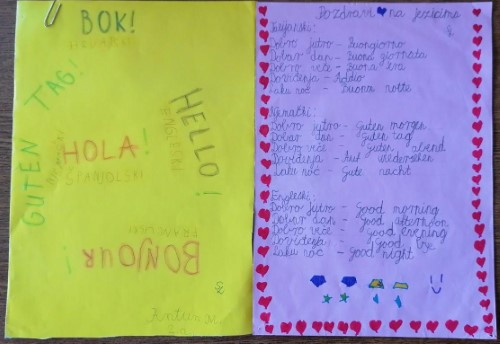 BOK!
HRVATSKI
GUTEN TAG!
HELLO!
ENGLESKI
HOLA!
ŠPANJOLSKI
FRANCUSKI
BONJOUR!
Pozdravi na jezicima
Talijanski:
Dobro jutro - Buongiorno
Dobar dan - Buona giornata
Dobro veče - Buona sera
Doviđenja - Addio
Laku noć - Buona notte
Njemački:
Dobro jutro - Guten morgen
Dobar dan - guten tag
Dobro veče - guten abend
Doviđenja - Auf wiedersehen
Laku noć - Gute nacht
Engleski:
Dobro jutro - Good morning
Dobar dan - good afternoon
Dobro veče - good evening
Doviđenja - Good bye
Laku noć - Good night